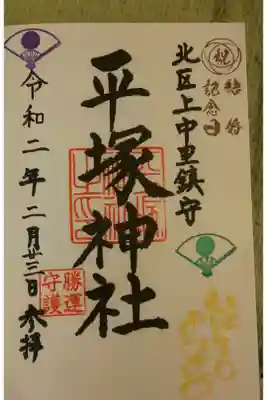 祝
結婚
記念日
北区上中里鎮守
平塚神社
勝運
守護
令和二年二月廿三日参拝